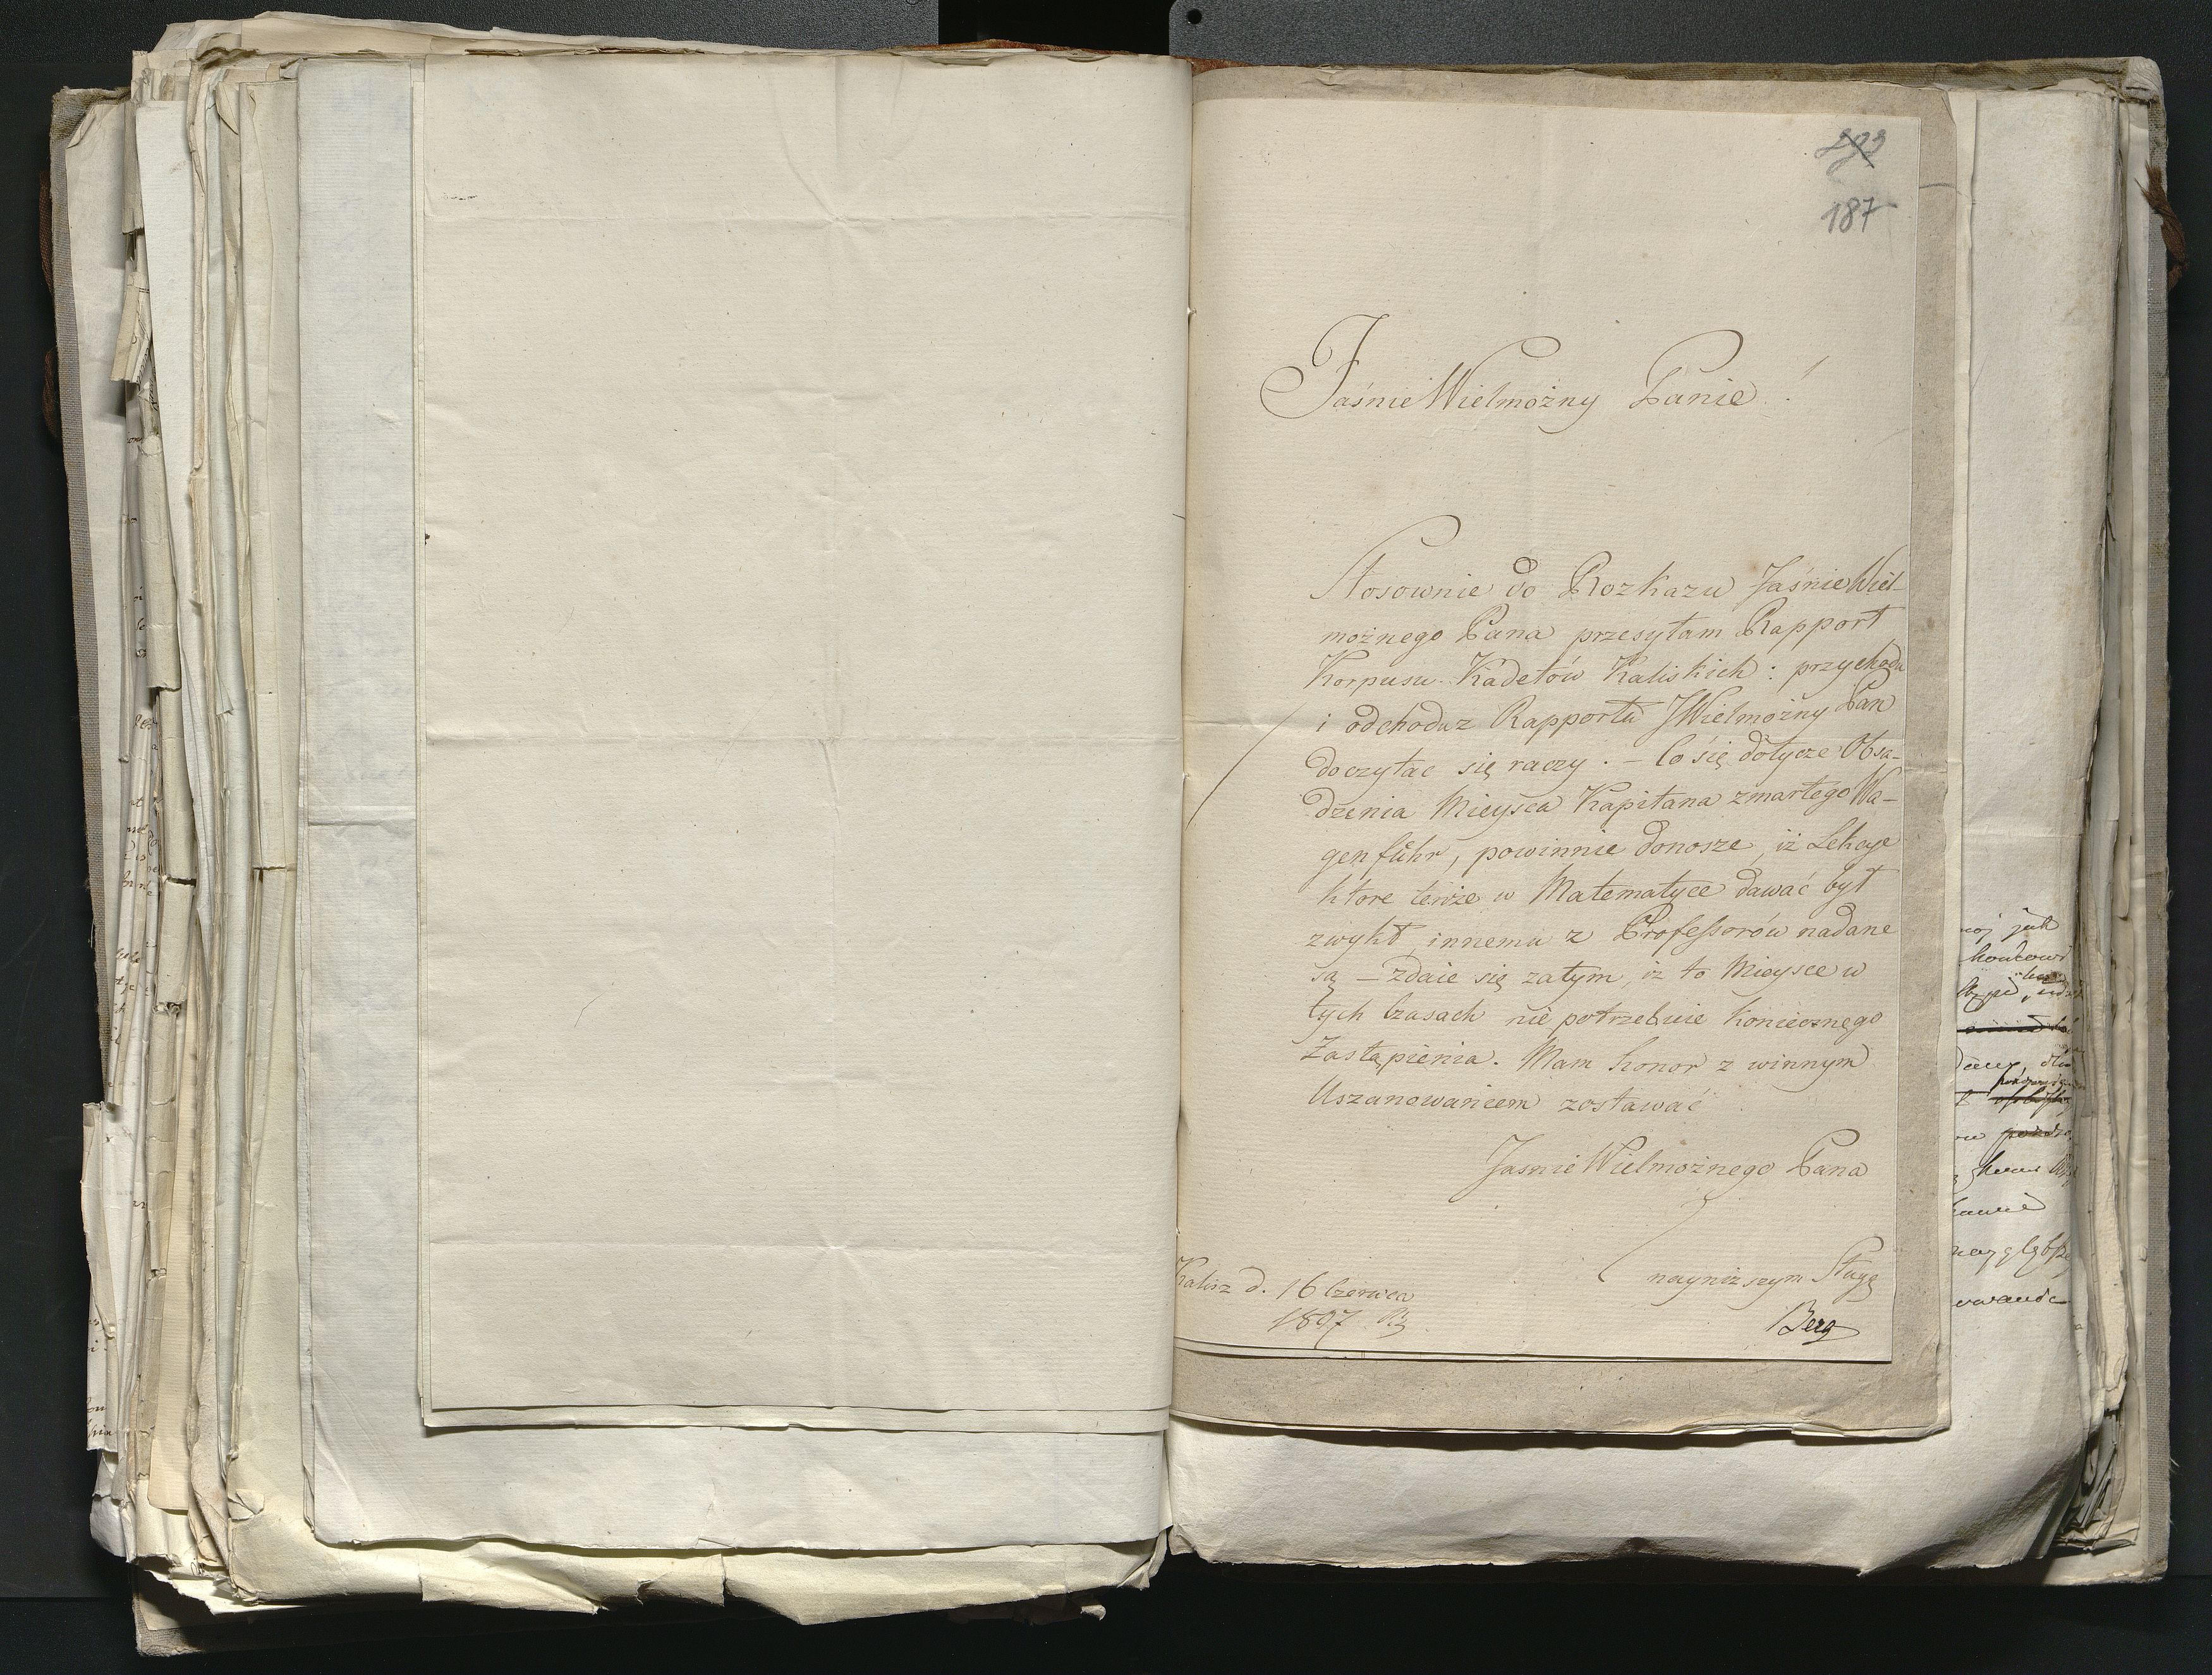 293
187
JaśnieWielmożny Panie!
Stosownie do Rozkazu JaśnieWiel-
możnego Pana przesyłam Rapport
Korpusu Kadetów Kaliskich: przychodu
i odchodu z Rapportu JWielmożny Pan
doczytac się raczy. – Co się dotycze Obsa-
dzenia Mieysca Kapitana zmarłego Wa-
genführ, powinnie donosze, iż Lekcye
ktore tenże w Matematyce dawać był
zwykł, innemu z Professorów nadane
są – zdaie się zatym, iż to Mieysce w
tych Czasach nie potrzebuie koniecznego
Zastąpienia. Mam honor z winnym
Uszanowaniem zostawać
JasnieWielmożnego Pana
nayniższym Sługą
Berg
Kalisz d. 16 Czerwca
1807 R